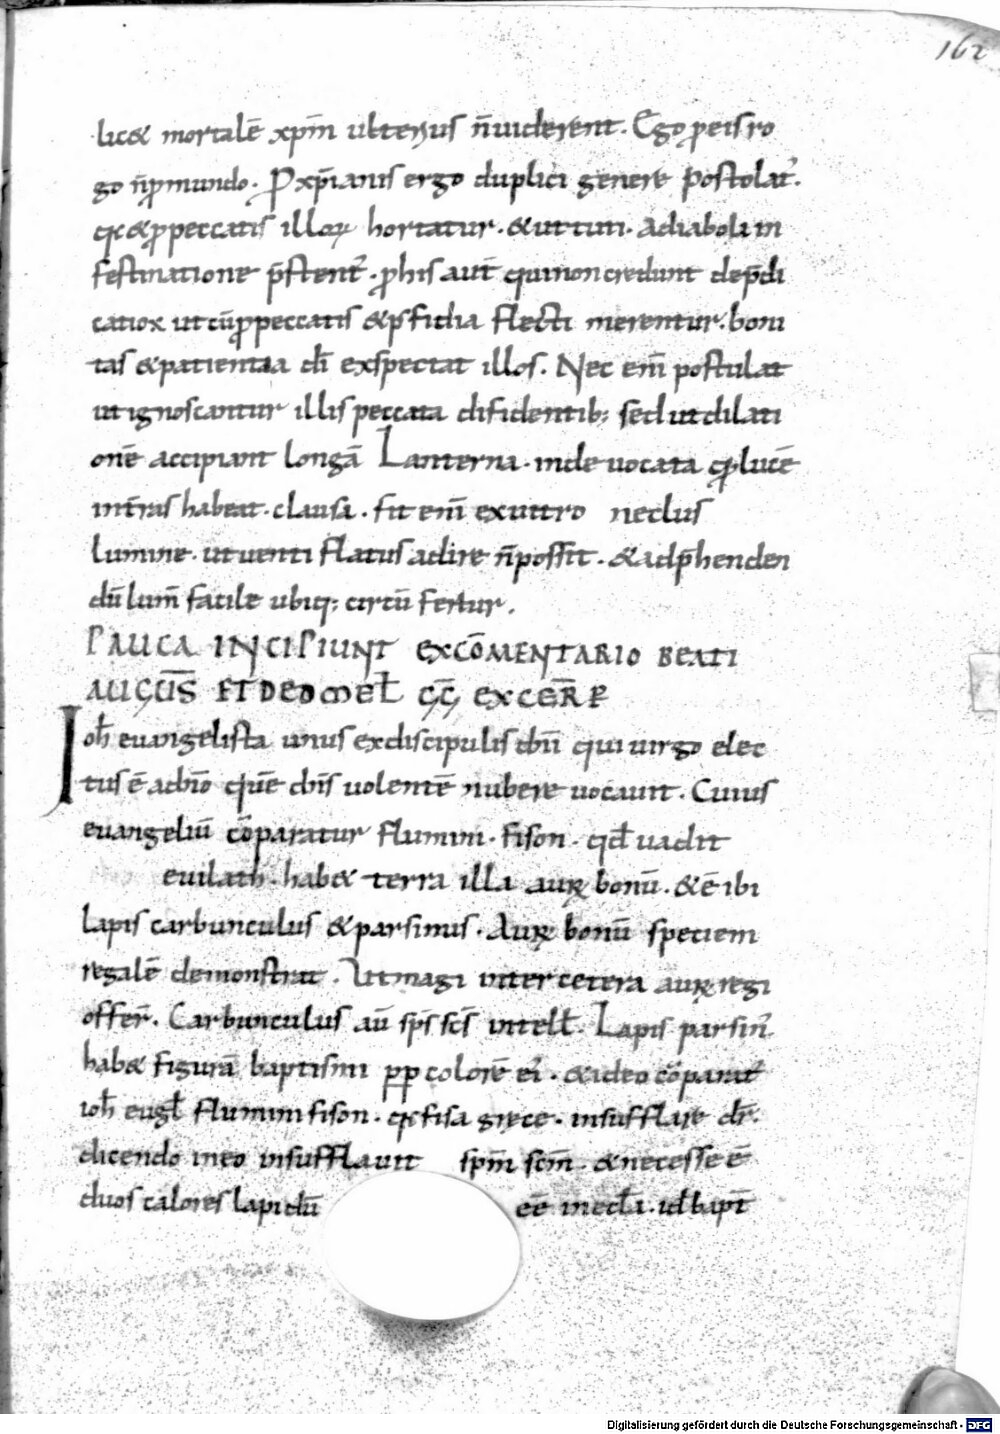 162
lic& mortalē xp̄m ulterius n̄uiderent. Ego ꝓeis ro
go n̄ꝓmundo. Ꝓxp̄ianis ergo duplici genere postolat᷑.
& ꝓpeccatis illoꝝ hortatur. & ut tuti. adiaboli in
festinatione p̄stent᷑. ꝓhis aut̄ qui non credunt dep̄di
ut cū ꝓpeccatis & ꝑfidia flecti merentur. boni
tas & patientia dī exspectat illos. Nec enī postulat
ut ignoscantur illis peccata difidentib; sed ut dilati
onē accipiant longā Lanterna. inde uocata lucē
int̄ras habeat. clausa. fit enī ex uitro neclus
lumine. ut uenti flatus adire n̄possit. & adp̄henden
dū lum̄ facile ubiq; circū fertur.
PAUCA INCIPIUNT EXCŌMENTARIO BEATI
AUGUS̄
Ioh̄ euangelista unus ex discipulis dn̄i qui uirgo elec
tus ē adn̄o quē dn̄s uolentē nubere uocauit. Cuius
euangeliū cōparatur flumini. fison. qd̄ uadit
euilath. hab& terra illa auꝝ bonū. & ē ibi
lapis carbunculus & parsinus. Auꝝ bonū speciem
regalē demonstrat. Ut magi inter cetera auꝝ regi
offer̄. Carbunculus aū sp̄s sc̄s intell̄. Lapis parsin᷑.
hab& figurā baptismi ꝓp colorē ei᷑. & ideo cōparat᷑
ioh̄ eugl̄ flumini fison. fisa grece. insufflare dr̄.
dicendo in eo insufflauit sp̄m sc̄m. & necesse ē
duos calores lapidū eē in eccl̄a. id bapt̄
Digitalisierung gefördert durch die Deutsche Forschungsgemeinschaft - DFG